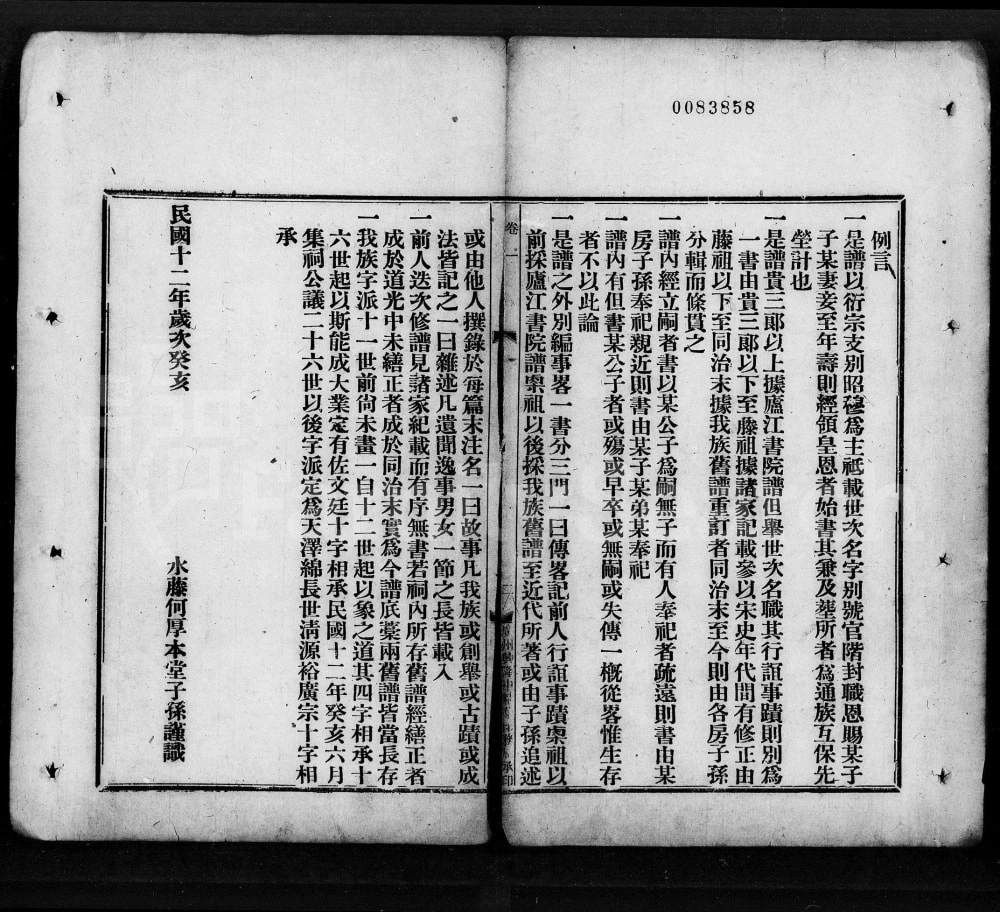 0083858
例言
一是譜以衍宗支别昭穆爲主祗載世次名字别號官階封職恩賜某子
子某妻妾至年壽則經領皇恩者始書其兼及塟所者爲通族互保先
塋計也
一是譜貴三郞以上據廬江書院譜但舉世次名職其行誼事蹟則別爲
一書由貴三郞以下至藤祖據諸家記載參以宋史年代間有修正由
藤祖以下至同治末據我族舊譜重訂者同治末至今則由各房子孫
分輯而條貫之
一譜內經立嗣者書以某公子爲嗣無子而有人奉祀者疏遠則書由某
房子孫奉祀親近則書由某子某弟某奉祀
一譜內有但書某公子者或殤或早卒或無嗣或失傳一概從畧惟生存
者不以此論
一是譜之外別編事畧一書分三門一曰傳畧記前人行誼事蹟槼祖以
前採廬江書院譜槼祖以後採我族舊譜至近代所著或由子孫追述
卷一
承印
或由他人撰錄於每篇末注名一曰故事凡我族或創舉或古蹟或成
法皆記之一曰雜述凡遺聞逸事男女一節之長皆載入
一前人迭次修譜見諸家紀載而有序無書若祠內所存舊譜經繕正者
成於道光中未繕正者成於同治末實爲今譜底藁兩舊譜皆當長存
一我族字派十一世前尙未畫一自十二世起以象之道其四字相承十
六世起以斯能成大業定有佐文廷十字相承民國十二年癸亥六月
集祠公議二十六世以後字派定爲天澤綿長世淸源裕廣宗十字相
承
民國十二年歲次癸亥
水藤何厚本堂子孫謹識